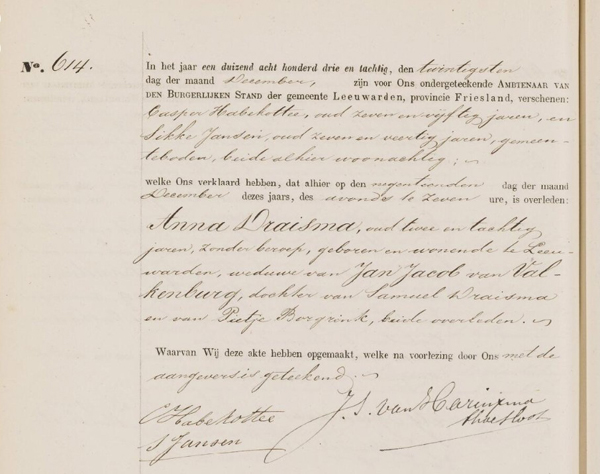 No. 614.
In het jaar een duizend acht honderd drie en tachtig, den twintigsten
dag der maand December, zijn voor Ons ondergeteekende AMBTENAAR VAN
DEN BURGERLIJKEN STAND der gemeente Leeuwarden, provincie Friesland, verschenen:
Casper Habekottee, oud zeven en vijftig jaren, en
Sikke Jansen, oud zeven en veertig jaren, gemeen-
teboden, beide alhier woonachtig;
welke Ons verklaard hebben, dat alhier op den negentienden dag der maand
December dezes jaars, des avonds te zeven ure, is overleden:
Anna Draisma, oud twee en tachtig
jaren, zonder beroep, geboren en wonende te Leeu-
warden, weduwe van Jan Jacob van Val-
kenburg, dochter van Samuel Draisma
en van Pietje Borgrink, beide overleden.
Waarvan Wij deze akte hebben opgemaakt, welke na voorlezing door Ons met de
aangevers is geteekend.
C Habekottee
J. S. van Harinxma
thoe Slooten
S Jansen